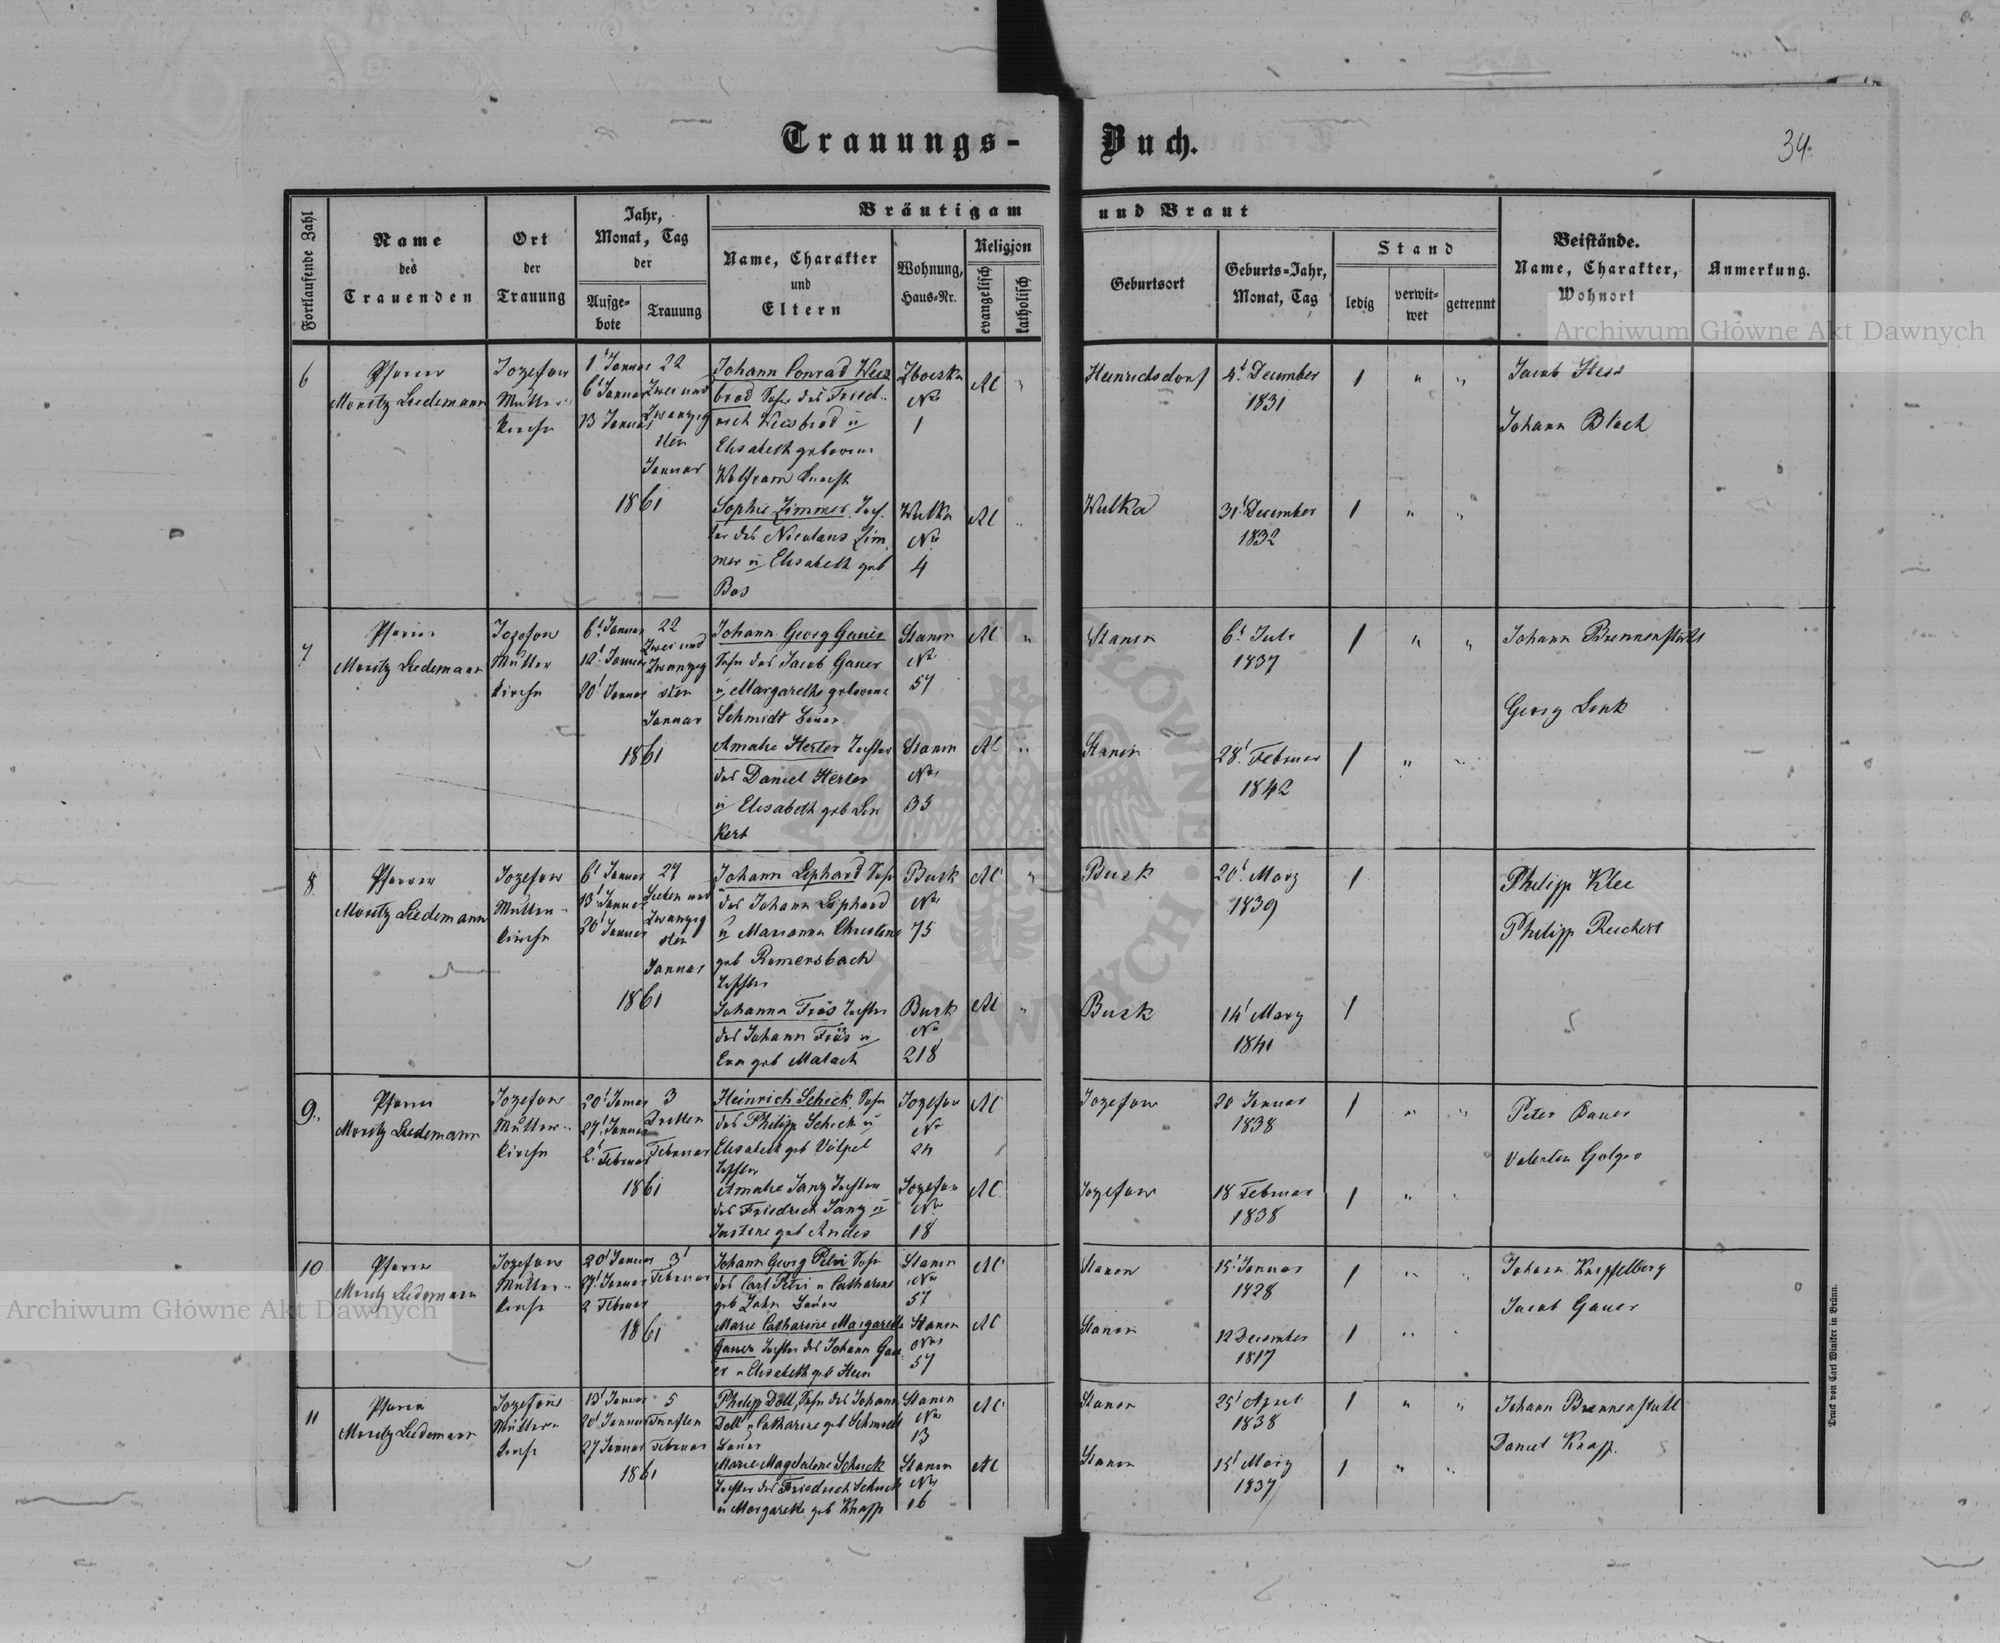 Trauungs-Buch.
34.
Fortlaufende Zahl
Name
des
Trauenden
Ort
der
Trauung
Jahr,
Monat, Tag
der
Aufge-
bote
Trauung
Bräutigam und Braut
Name, Charakter
und
Eltern
Wohnung,
Haus-Nr.
Religion
evangelisch
katholisch
Geburtsort
Geburts-Jahr,
Monat, Tag
Stand
ledig
verwit-
wet
getrennt
Beistände.
Name, Charakter,
Wohnort
Anmerkung.
Archiwum Główne Akt Dawnych
6
Pfarrer
Moritz Luedemann
Jozefow
Mutter-
kirche
1t Januar
6t Januar
13 Januar
22
Zwei und
Zwanzig
sten
Januar
1861
Johann Conrad Wies
brod Sohn des Fried-
rich Wiesbrod u
Elisabeth geborene
Wolfram
Zboiska
No
1
AC
Heinrichsdorf
4t December
1831
1
Jacob Hess
Johann Bloch
Sophie Zimmer Toch
ter des Nicolaus Zim
mer u Elisabeth geb
Bos
Wulka
No
4
AC
Wulka
31t December
1832
1
7
Pfarrer
Moritz Luedemann
Jozefow
Mutter
kirche
6t Januar
20t Januar
22
Zwei und
Zwanzig
sten
Januar
1861
Johann Georg Gauer
Sohn des Jacob Gauer
u Margarethe geborene
Schmidt Bauer
Stanin
No
57
AC
Stanin
6t Juli
1837
1
Johann Brennenstuhl
Georg Lenk
Amalie Herter Tochter
des Daniel Herter
u Elisabeth geb Lin
kert
Stanin
No
35
AC
Stanin
28t Februar
1842
1
8
Pfarrer
Moritz Luedemann
Jozefow
Mutter-
kirche
6t Januar
13t Januar
20t Januar
27
Sieben und
Zwanzig
sten
Januar
1861
Johann Lephard Sohn
des Johann Lephard
u Marianna Christine
geb Romersbach
Busk
No
75
AC
Busk
20t März
1839
1
Philipp Klee
Philipp Reichert
Johanna Fräs Tochter
des Johann Fräs u
Eva geb Malach
Busk
No
218
AC
Busk
14t März
1841
1
9.
Pfarrer
Moritz Luedemann
Jozefow
Mutter-
kirche
20t Januar
27t Januar
2t Februar
3
Dritten
Februar
1861
Heinrich Schick, Sohn
des Philipp Schick u
Elisabeth geb Völpel
Jozefow
No
24
AC
Jozefow
20 Januar
1838
1
Peter Bauer
Amalie Janz Tochter
des Friedrich Janz u
Justine geb Andes
Jozefow
No
18
AC
Jozefow
18 Februar
1838
1
10
Pfarrer
Moritz Luedemann
Jozefow
Mutter-
kirche
20t Januar
27t Januar
2 Februar
3t
Februar
1861
Johann Georg Petri Sohn
des Carl Petri u Catharine
geb Jahn Bauer
Stanin
No
57
AC
Stanin
15t Januar
1828
1
Jacob Gauer
Marie Catharine Margarethe
Gauer Tochter des Johann Gau
er u Elisabeth geb Stein
Stanin
No
57
AC
Stanin
12 December
1817
1
11
Pfarrer
Moritz Luedemann
Jozefow
Mutter-
kirche
13t Januar
20t Januar
27 Januar
5
Fünften
Februar
1861
Philipp Doll, Sohn des Johann
Doll u Catharine geb Schmidt
Bauer
Stanin
No
13
AC
Stanin
25t April
1838
1
Johann Brennenstuhl
Daniel Knapp.
Marie Magdalene Schuck
Tochter des Friedrich Schuck
u Margarethe geb Knapp
Stanin
No
16
AC
Stanin
15t März
1837
1
Archiwum Główne Akt Dawnych
Druck von Carl Winiker in Brünn.